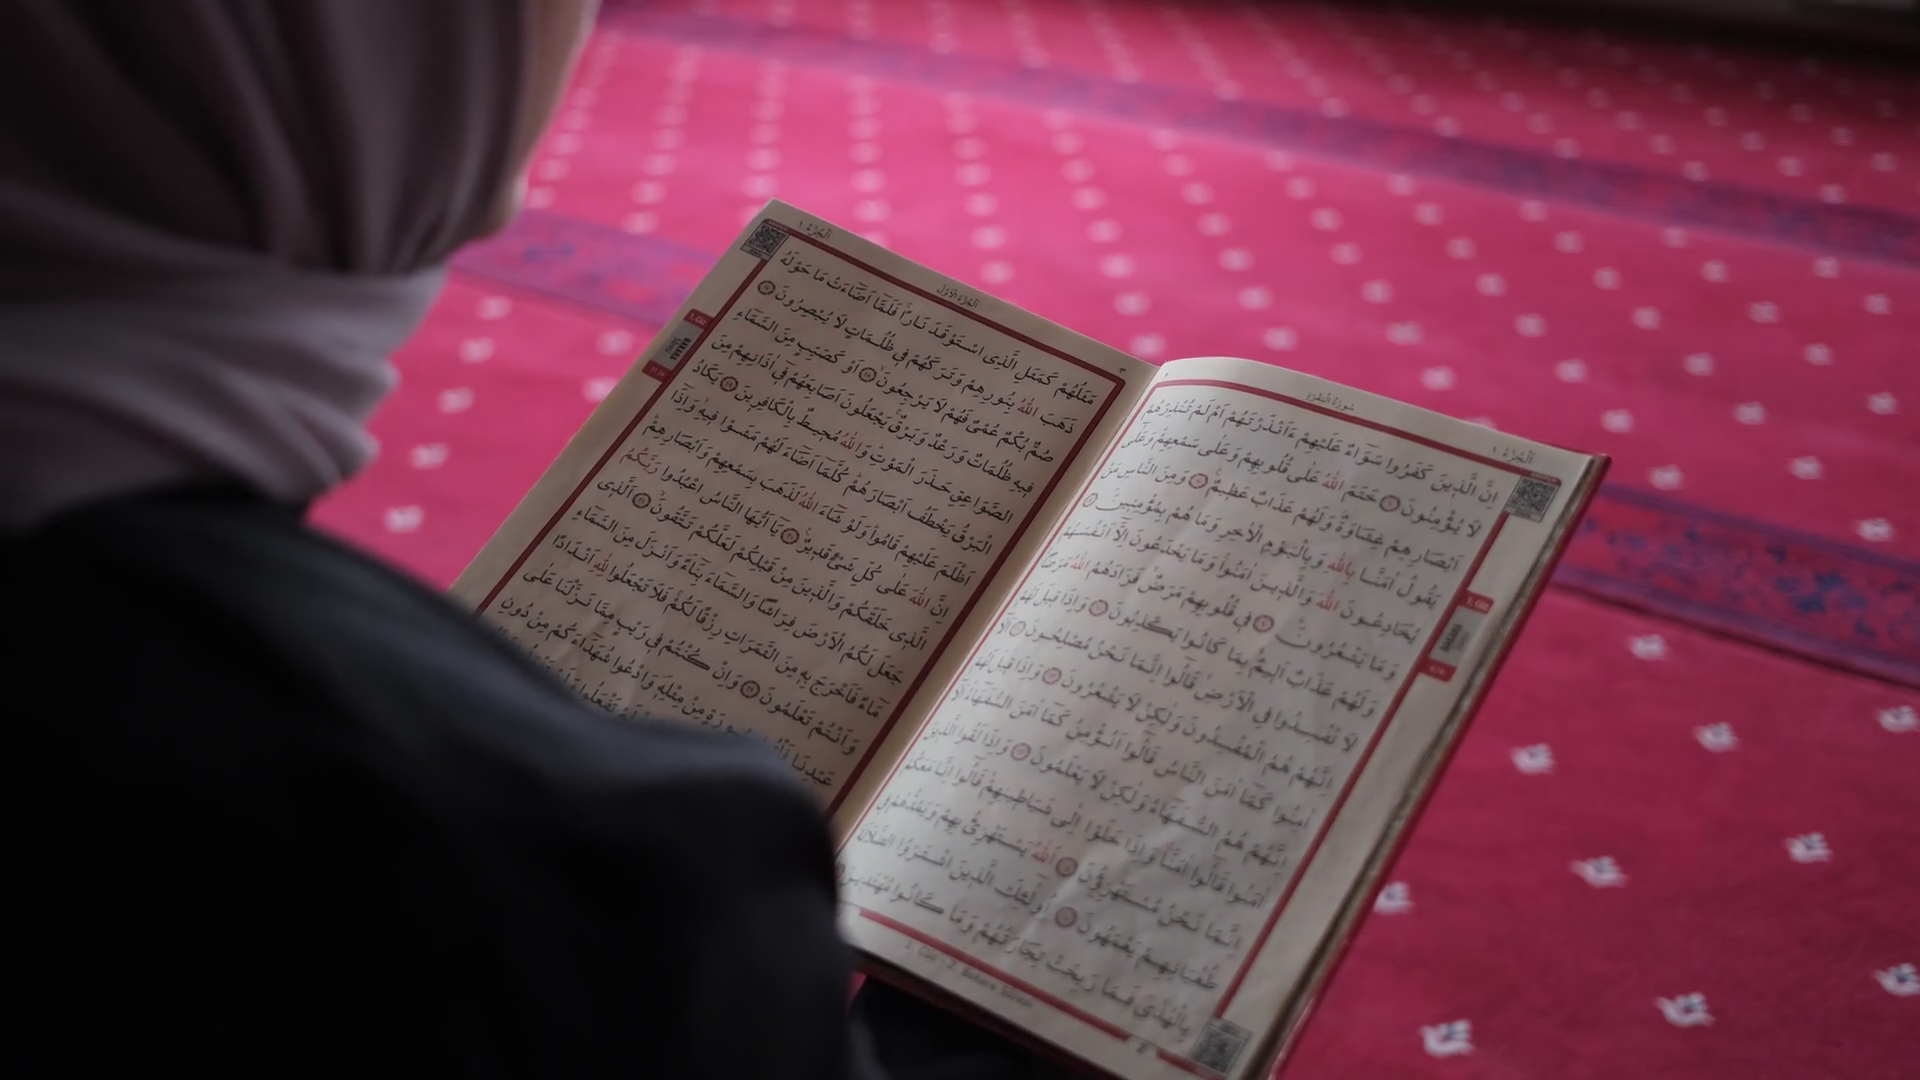 الجزء ١
سورة البقرة
اِنَّ الَّذ۪ينَ كَفَرُوا سَوَٓاءٌ عَلَيْهِمْ ءَاَنْذَرْتَهُمْ اَمْ لَمْ تُنْذِرْهُمْ
لَا يُؤْمِنُونَ ٦ خَتَمَ اللّٰهُ عَلٰى قُلُوبِهِمْ وَعَلٰى سَمْعِهِمْۜ وَعَلٰٓى
اَبْصَارِهِمْ غِشَاوَةٌۘ وَلَهُمْ عَذَابٌ عَظ۪يمٌ۟ ٧ وَمِنَ النَّاسِ مَنْ
يَقُولُ اٰمَنَّا بِاللّٰهِ وَبِالْيَوْمِ الْاٰخِرِ وَمَا هُمْ بِمُؤْمِن۪ينَۢ ٨
يُخَادِعُونَ اللّٰهَ وَالَّذ۪ينَ اٰمَنُواۚ وَمَا يَخْدَعُونَ اِلَّٓا اَنْفُسَهُمْ
وَمَا يَشْعُرُونَۜ ٩ ف۪ي قُلُوبِهِمْ مَرَضٌۙ فَزَادَهُمُ اللّٰهُ مَرَضًاۚ
وَلَهُمْ عَذَابٌ اَل۪يمٌۙ بِمَا كَانُوا يَكْذِبُونَ ١٠ وَاِذَا ق۪يلَ لَهُمْ
لَا تُفْسِدُوا فِي الْاَرْضِۙ قَالُٓوا اِنَّمَا نَحْنُ مُصْلِحُونَ ١١ اَلَٓا
اِنَّهُمْ هُمُ الْمُفْسِدُونَ وَلٰكِنْ لَا يَشْعُرُونَ ١٢ وَاِذَا ق۪يلَ لَهُمْ
اٰمِنُوا كَمَٓا اٰمَنَ النَّاسُ قَالُٓوا اَنُؤْمِنُ كَمَٓا اٰمَنَ السُّفَهَٓاءُۜ اَلَٓا
اِنَّهُمْ هُمُ السُّفَهَٓاءُ وَلٰكِنْ لَا يَعْلَمُونَ ١٣ وَاِذَا لَقُوا الَّذ۪ينَ
اٰمَنُوا قَالُٓوا اٰمَنَّاۚ وَاِذَا خَلَوْا اِلٰى شَيَاط۪ينِهِمْۙ قَالُٓوا اِنَّا مَعَكُمْۙ
اِنَّمَا نَحْنُ مُسْتَهْزِؤُ۫نَ ١٤ اَللّٰهُ يَسْتَهْزِئُ بِهِمْ وَيَمُدُّهُمْ ف۪ي
طُغْيَانِهِمْ يَعْمَهُونَ ١٥ اُو۬لٰٓئِكَ الَّذ۪ينَ اشْتَرَوُا الضَّلَالَةَ
بِالْهُدٰىۖ فَمَا رَبِحَتْ تِجَارَتُهُمْ وَمَا كَانُوا مُهْتَد۪ينَ
1. Cüz - 2. Bakara Sûresi
2
الجزء ١
الجزء الاول
٣
مَثَلُهُمْ كَمَثَلِ الَّذِي اسْتَوْقَدَ نَارًاۚ فَلَمَّٓا اَضَٓاءَتْ مَا حَوْلَهُ
ذَهَبَ اللّٰهُ بِنُورِهِمْ وَتَرَكَهُمْ ف۪ي ظُلُمَاتٍ لَا يُبْصِرُونَ ١٧
صُمٌّ بُكْمٌ عُمْيٌ فَهُمْ لَا يَرْجِعُونَۙ ١٨ اَوْ كَصَيِّبٍ مِنَ السَّمَٓاءِ
ف۪يهِ ظُلُمَاتٌ وَرَعْدٌ وَبَرْقٌۚ يَجْعَلُونَ اَصَابِعَهُمْ ف۪ٓي اٰذَانِهِمْ مِنَ
الصَّوَاعِقِ حَذَرَ الْمَوْتِۜ وَاللّٰهُ مُح۪يطٌ بِالْكَافِر۪ينَ ١٩ يَكَادُ
الْبَرْقُ يَخْطَفُ اَبْصَارَهُمْۜ كُلَّمَٓا اَضَٓاءَ لَهُمْ مَشَوْا ف۪يهِۙ وَاِذَٓا
اَظْلَمَ عَلَيْهِمْ قَامُواۜ وَلَوْ شَٓاءَ اللّٰهُ لَذَهَبَ بِسَمْعِهِمْ وَاَبْصَارِهِمْۜ
اِنَّ اللّٰهَ عَلٰى كُلِّ شَيْءٍ قَد۪يرٌ۟ ٢٠ يَٓا اَيُّهَا النَّاسُ اعْبُدُوا رَبَّكُمُ
الَّذ۪ي خَلَقَكُمْ وَالَّذ۪ينَ مِنْ قَبْلِكُمْ لَعَلَّكُمْ تَتَّقُونَۙ ٢١ اَلَّذ۪ي
جَعَلَ لَكُمُ الْاَرْضَ فِرَاشًا وَالسَّمَٓاءَ بِنَٓاءًۖ وَاَنْزَلَ مِنَ السَّمَٓاءِ
مَٓاءً فَاَخْرَجَ بِه۪ مِنَ الثَّمَرَاتِ رِزْقًا لَكُمْۚ فَلَا تَجْعَلُوا لِلّٰهِ اَنْدَادًا
وَاَنْتُمْ تَعْلَمُونَ ٢٢ وَاِنْ كُنْتُمْ ف۪ي رَيْبٍ مِمَّا نَزَّلْنَا عَلٰى
عَبْدِنَا فَأْتُوا بِسُورَةٍ مِنْ مِثْلِه۪ۖ وَادْعُوا شُهَدَٓاءَكُمْ مِنْ دُونِ